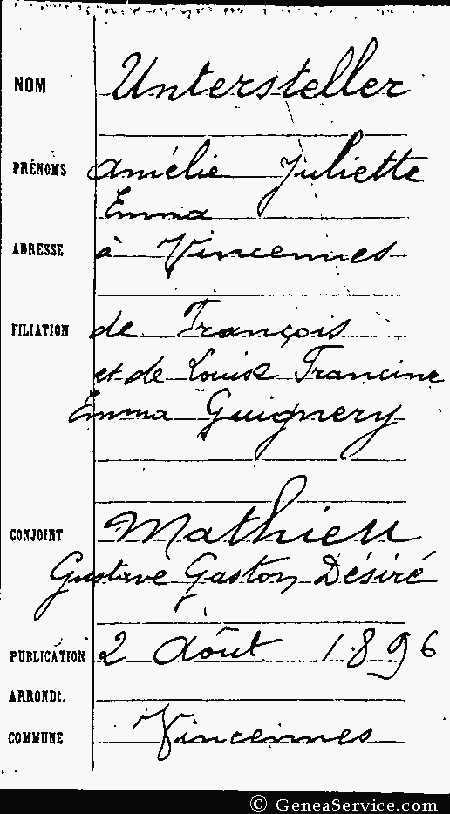 NOM Untersteller
PRÉNOMS Amélie Juliette
Emma
ADRESSE à Vincennes
FILIATION de François
et de Louise Francine
Emma Guignery
CONJOINT Mathieu
Gustave Gaston Désiré
PUBLICATION 2 Août 1896
ARRONDt.
COMMUNE Vincennes
© GeneaService.com